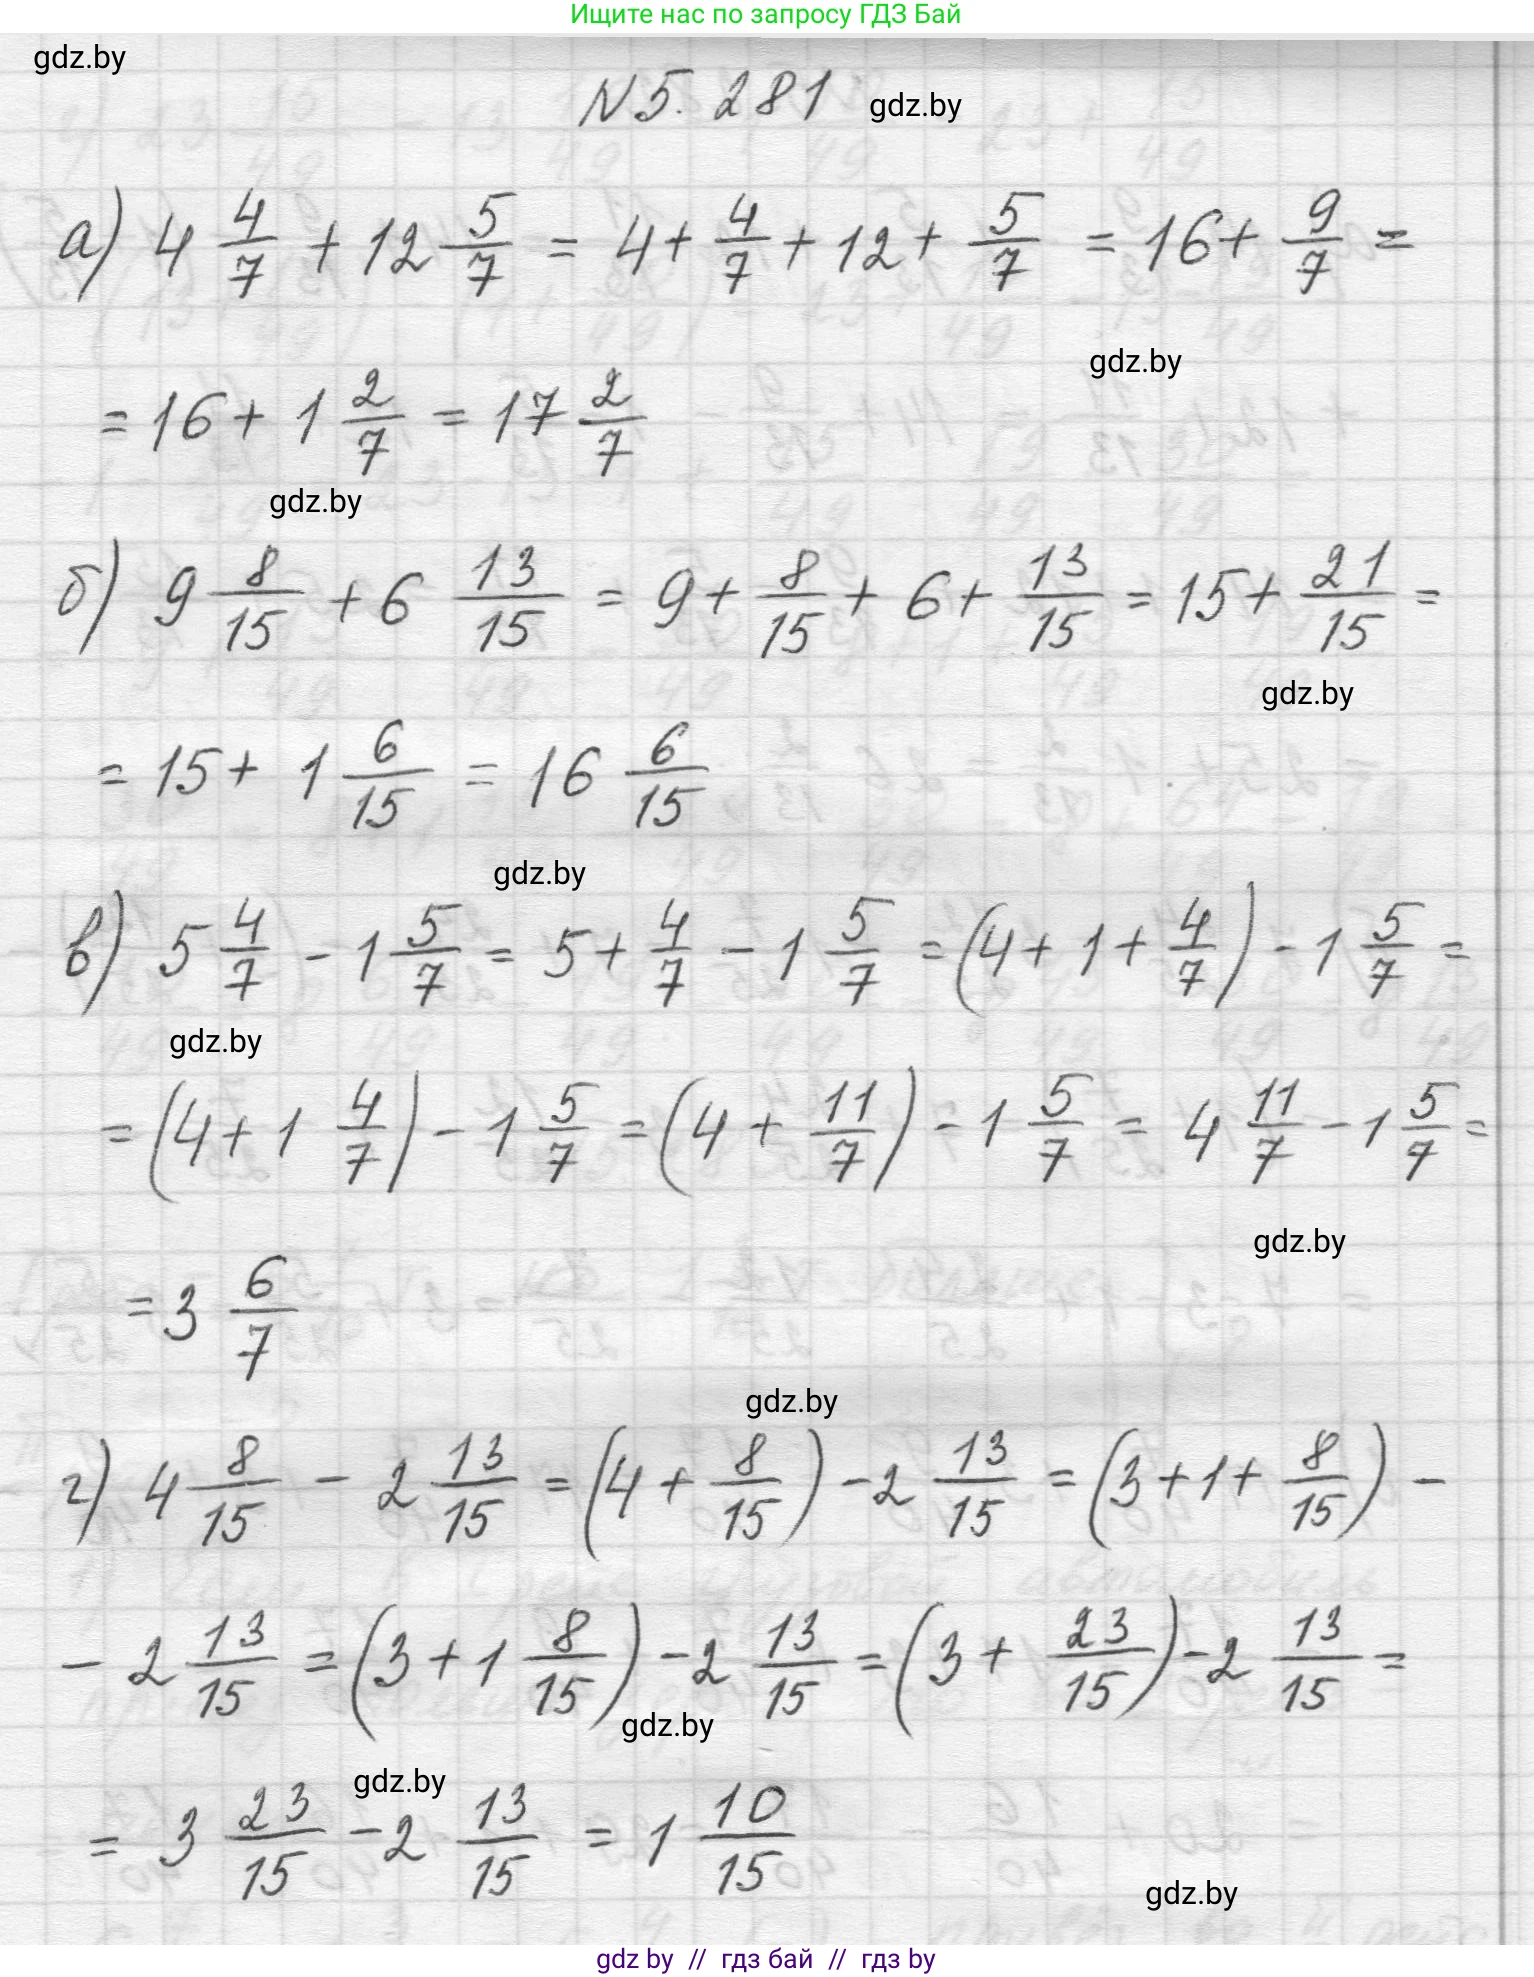 Ищите нас по запросу ГДЗ Бай
gdz.by
N5.281 gdz.by
а) 4 4/7 + 12 5/7 = 4 + 4/7 + 12 + 5/7 = 16 + 9/7 =
gdz.by
= 16 + 1 2/7 = 17 2/7
gdz.by
б) 9 8/15 + 6 13/15 = 9 + 8/15 + 6 + 13/15 = 15 + 21/15 =
gdz.by
= 15 + 1 6/15 = 16 6/15
gdz.by
в) 5 4/7 - 1 5/7 = 5 + 4/7 - 1 5/7 = (4 + 1 + 4/7) - 1 5/7 =
gdz.by
= (4 + 1 4/7) - 1 5/7 = (4 + 11/7) - 1 5/7 = 4 11/7 - 1 5/7 =
gdz.by
= 3 6/7
gdz.by
г) 4 8/15 - 2 13/15 = (4 + 8/15) - 2 13/15 = (3 + 1 + 8/15) -
- 2 13/15 = (3 + 1 8/15) - 2 13/15 = (3 + 23/15) - 2 13/15 =
gdz.by
gdz.by
= 3 23/15 - 2 13/15 = 1 10/15
gdz.by
gdz by // гдз бай // гдз by